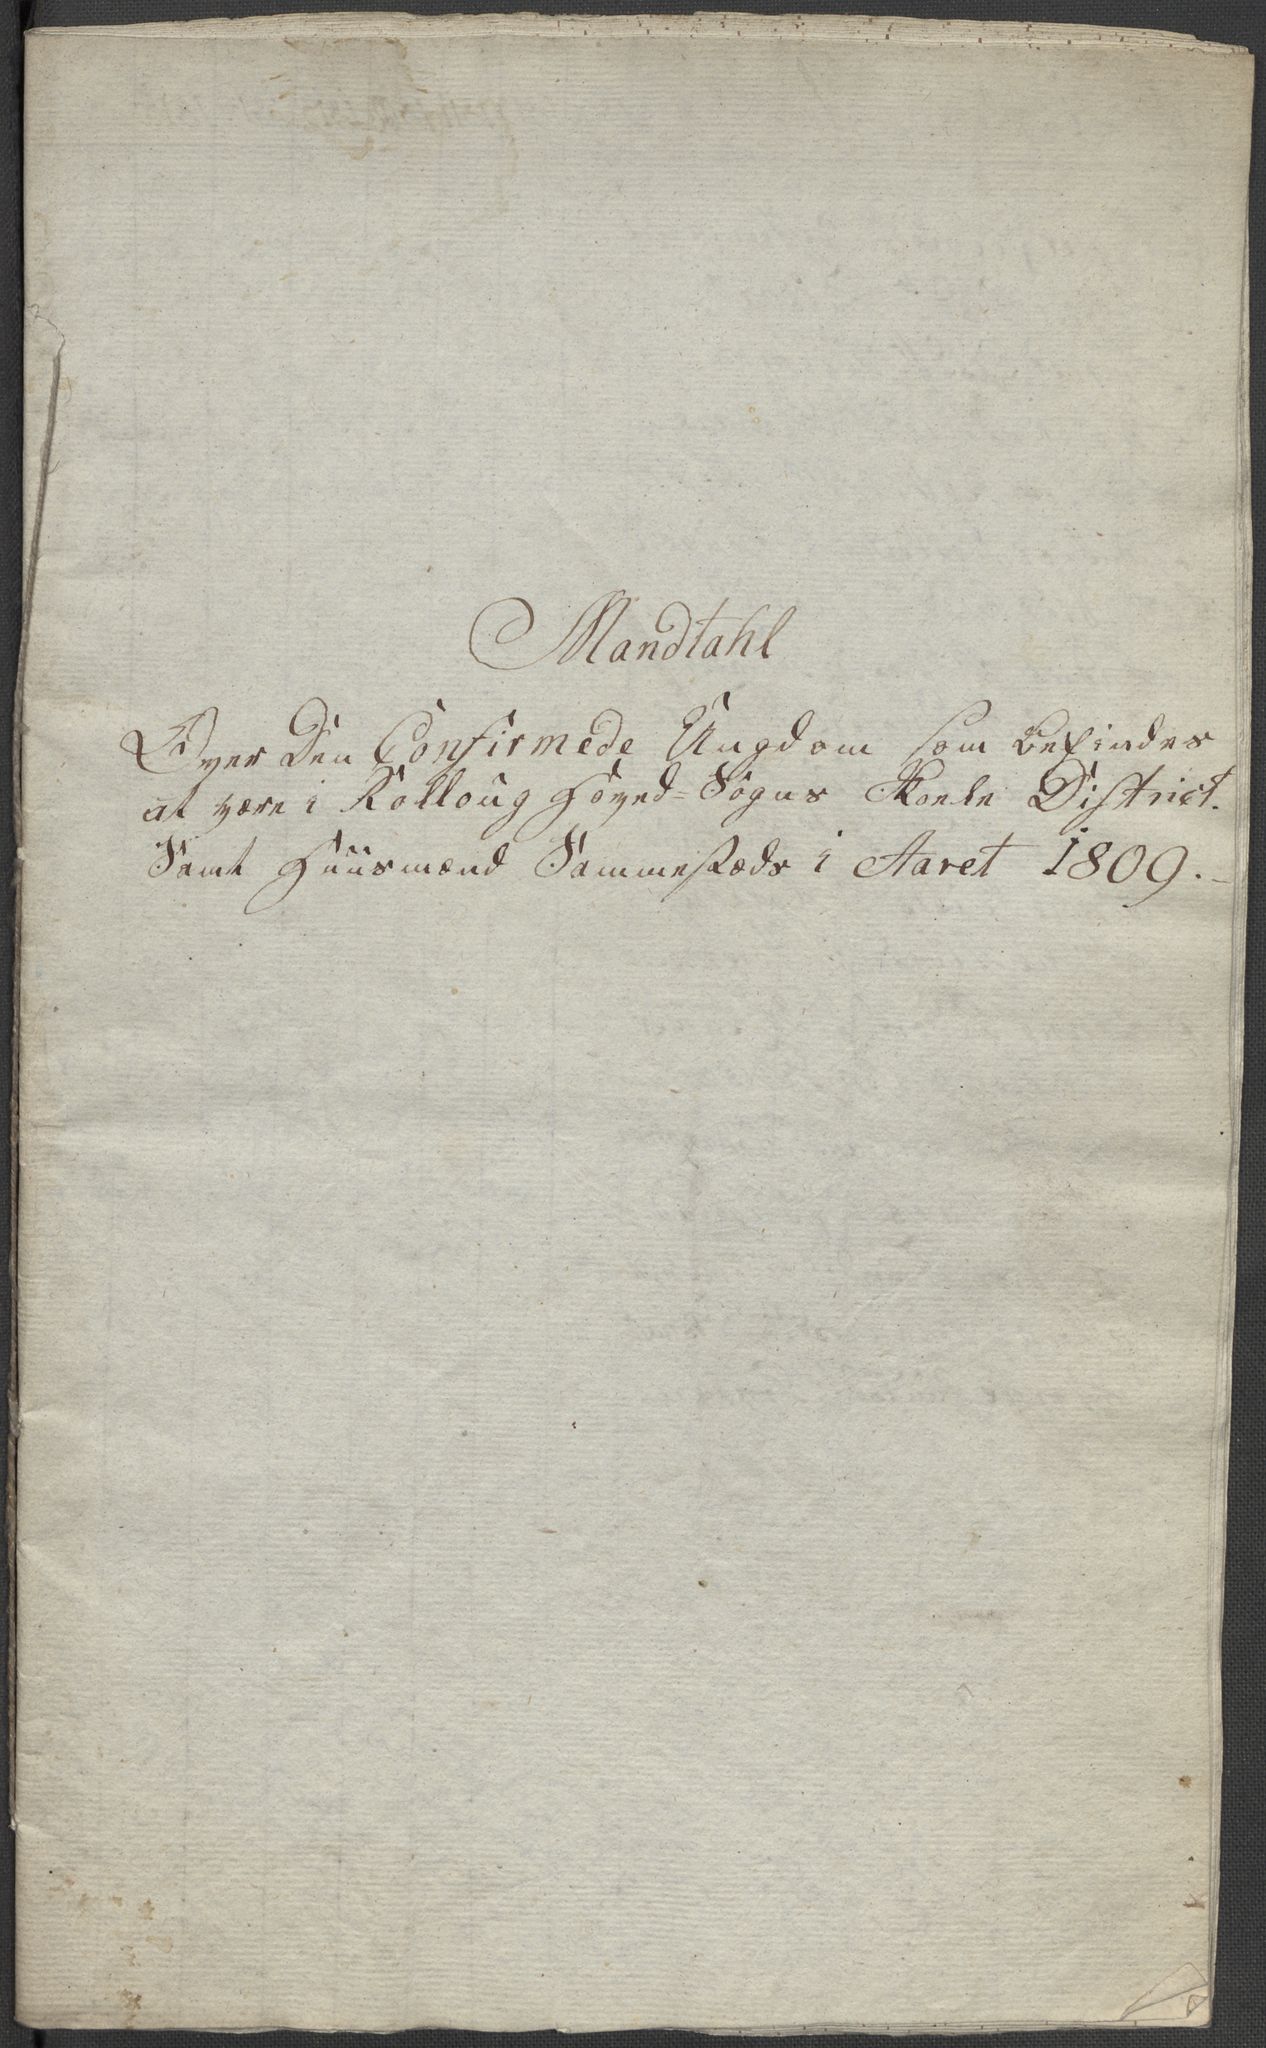 Mandtahl
Over Den Confirmede Ungdom som befindes
at være i Rolloug Hoved=Sogns Skoele District.
Samt Huusmænd Sammestæds i Aaret 1809.